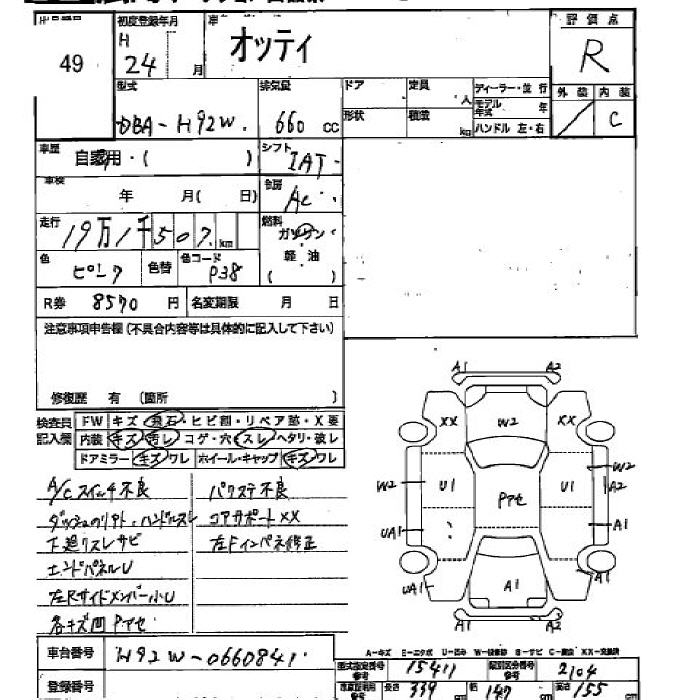 49
初度登録年月
H 24 月
オッティ
評価点
R
型式
DBA-H92W
排気量
660 cc
ドア
定員
人
ディーラー・並行
モデル年式 年
形状
積載
km
ハンドル 左・右
外装 内装
C
車歴 自家用・( )
シフト
IAT
車検 年 月( 日)
冷房
AC
走行
19万1千507 km
燃料
ガソリン
軽油
( )
色 ピンク 色替 色コード P38
R券 8570 円 名変期限 月 日
注意事項申告欄(不具合内容等は具体的に記入して下さい)
修復歴 有 (箇所 )
検査員記入欄
FW キズ・飛石・ヒビ割・リペア跡・X要
内装 キズ・汚レ・コゲ・穴・スレ・ヘタリ・破レ
ドアミラー キズ・ワレ ホイール・キャップ キズ・ワレ
A/Cスイッチ不良
パワステ不良
コアサポートXX
下廻リスレサビ
左Fインパネ修正
エンドパネルU
左Rサイドメンバー小U
各キズ凹Pアセ
A1 A2
XX W2 XX
W2 U1 Pアセ U1 W2 A2
UA1 A1
UA1 A1 A1
A2 A2
A-キズ E-エクボ U-凹み W-補修跡 S-サビ C-腐蝕 XX-交換済
車台番号 H92W-0660841
型式指定番号 15411 類別区分番号 2104
登録番号
長さ 339 cm 幅 147 cm 高さ 155 cm